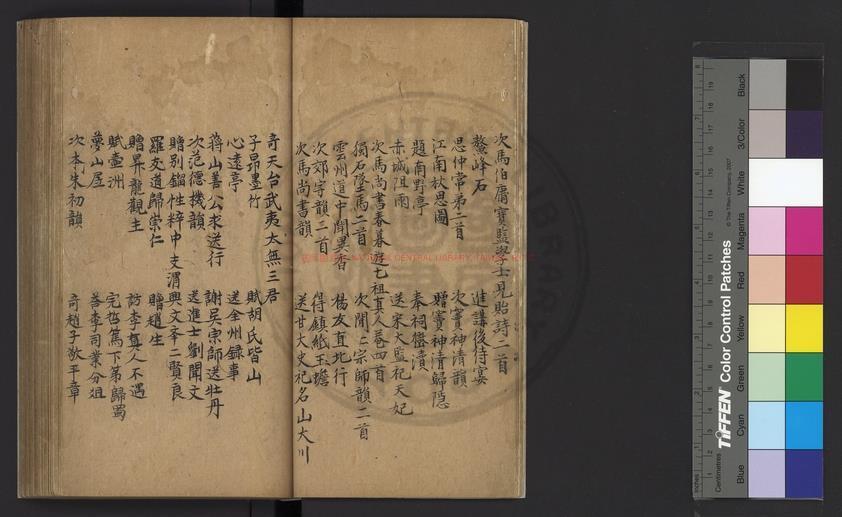 次馬伯庸寶監學士見貽詩二首
鰲峰石　進講後侍宴
思仲常弟二首　次寶神清韻
江南秋思圖　贈寶神清歸隱
題南野亭　奉祠濟瀆
赤城阻雨　送宋大監祀天妃
次馬尚書春暮遊七祖真人菴四首
獨石墜馬二首　次閒二宗師韻二首
雲州道中聞異香　楊友直北行
次郊字韻二首　得鎮紙玉蟾
次馬尚書韻　送甘大史祀名山大川
寄天台武夷太無三君
子昂墨竹　賦胡氏皆山
心遠亭　送全州錄事
蔣山善公求送行　謝吳宗師送牡丹
次范德機韻　送進士劉聞文
贈別鎦性粹中支渭興文夲二賢良
羅友道歸崇仁　贈趙生
贈昇龍觀主　訪李真人不遇
賦壺洲　完哲篤下第歸蜀
夢山屋　答李司業分俎
次本朱初韻　寄趙子敬平章
Black
3/Color
White
Magenta
Red
Yellow
Green
Cyan
Blue
TIFFEN Color Control Patches
© The Tiffen Company, 2007
Centimetres
Inches